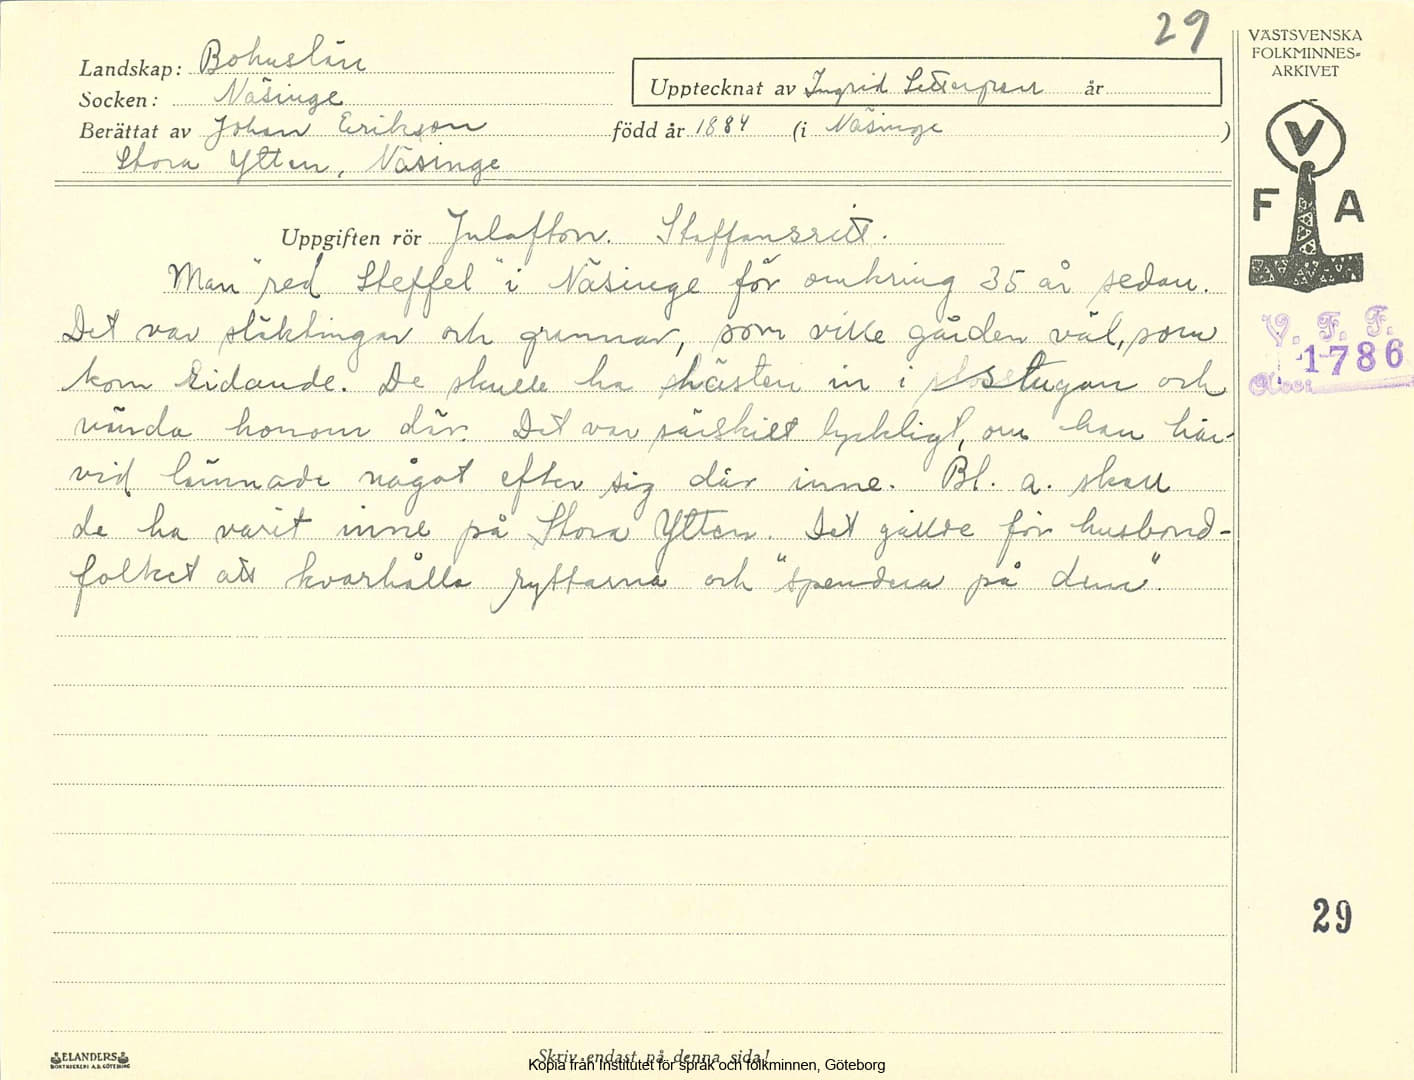 29
Landskap: Bohuslän
Socken: Näsinge
Upptecknat av Ingrid år
Berättat av Johan Erikson född år 1884 (i Näsinge )
Stora Ytten, Näsinge
Uppgiften rör Julafton. Staffansritt.
Man "red Steffel" i Näsinge för omkring 35 år sedan.
Det var släktingar och grannar, som ville gården väl, som
kom ridande. De skulle ha hästen in i stugan och
vända honom där. Det var särskilt lyckligt, om han här-
vid lämnade något efter sig där inne. Bl. a. skall
de ha varit inne på Stora Ytten. Det gällde för husbond-
folket att kvarhålla ryttarna och "spendera på dem".
VÄSTSVENSKA
FOLKMINNES-
ARKIVET
V
F A
V. F. F.
1786
Acc.
29
ELANDERS
BOKTRYCKERI A.B. GÖTEBORG
Skriv endast på denna sida!
Kopia från Institutet för språk och folkminnen, Göteborg